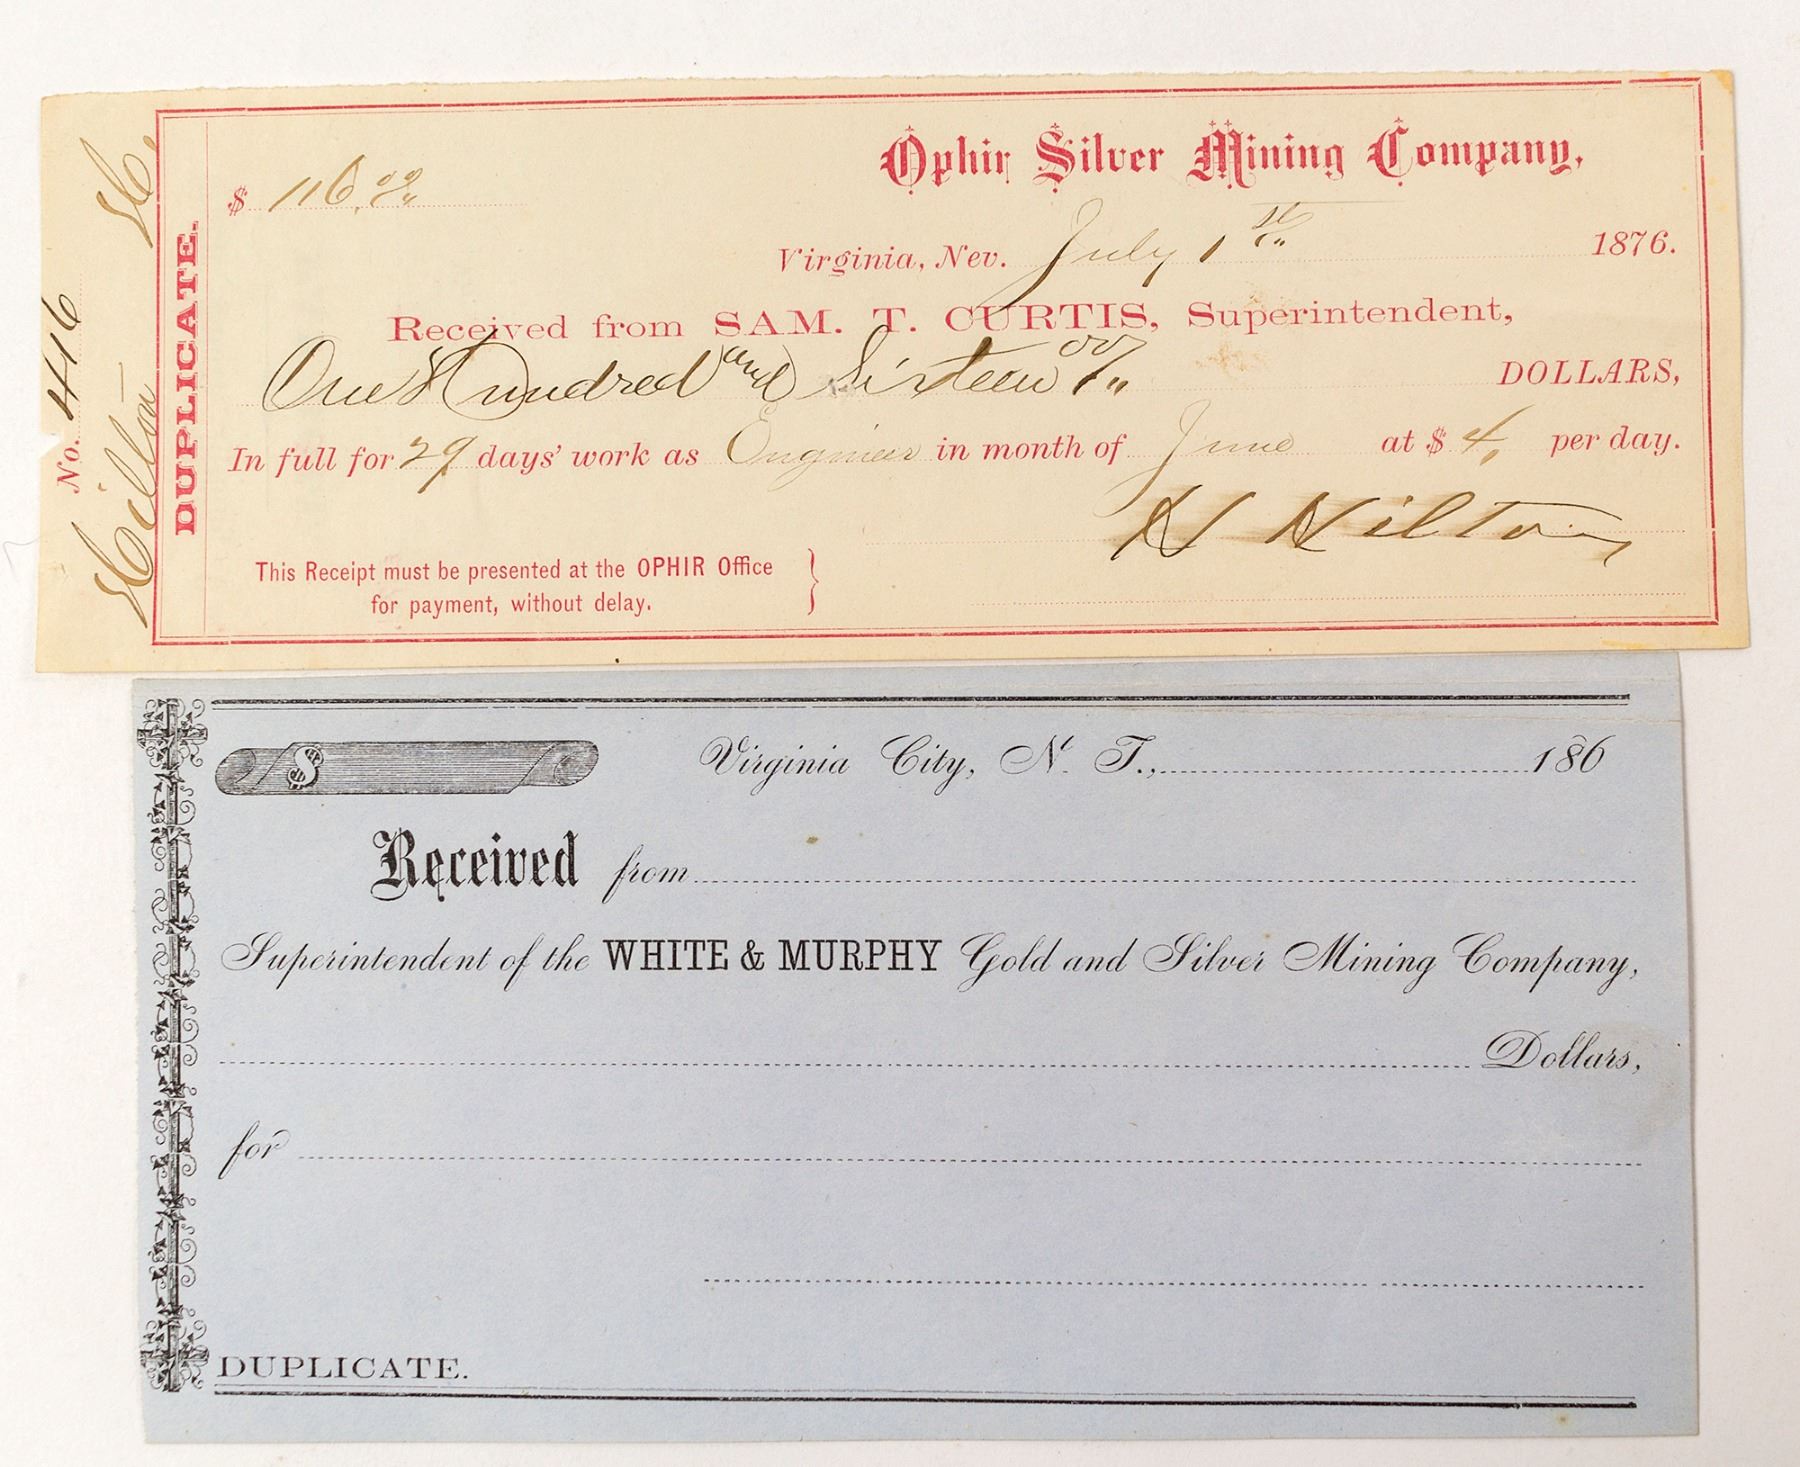 No. 416
Hilton H.
DUPLICATE.
Ophir Silver Mining Company,
$ 116.00
Virginia, Nev. July 1st 1876.
Received from SAM. T. CURTIS, Superintendent,
One Hundred and Sixteen 00/ DOLLARS,
In full for 29 days' work as Engineer in month of June at $ 4, per day.
H Hilton
This Receipt must be presented at the OPHIR Office
for payment, without delay.
$
Virginia City, N. T., 186
Received from
Superintendent of the WHITE & MURPHY Gold and Silver Mining Company,
Dollars,
for
DUPLICATE.